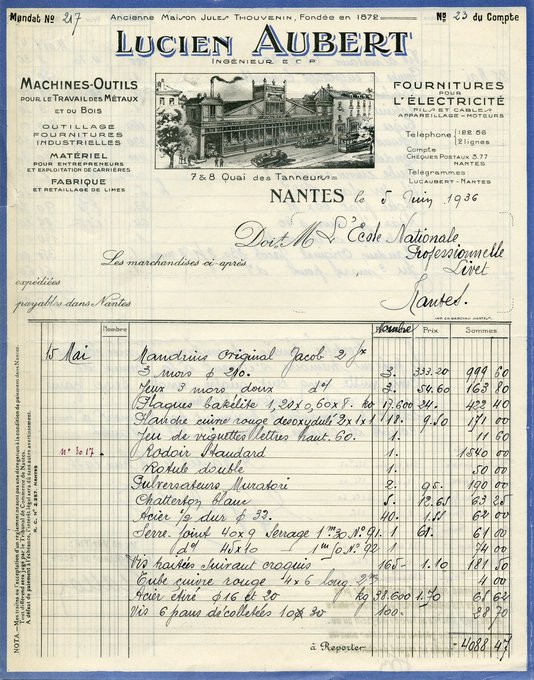 Mandat № 217
Ancienne Maison Jules Thouvenin, Fondée en 1872
№ 23 du Compte
LUCIEN AUBERT
INGÉNIEUR E C P
MACHINES-OUTILS
POUR LE TRAVAIL DES MÉTAUX
ET DU BOIS
OUTILLAGE
FOURNITURES
INDUSTRIELLES
MATÉRIEL
POUR ENTREPRENEURS
ET EXPLOITATION DE CARRIÈRES
FABRIQUE
ET RETAILLAGE DE LIMES
FOURNITURES
POUR
L'ÉLECTRICITÉ
FILS ET CABLES
APPAREILLAGE - MOTEURS
Téléphone 122.56
2 lignes
Compte
Chèques Postaux 3.77
NANTES
Télégrammes
LUCAUBERT-NANTES
7 & 8 Quai des Tanneurs
NANTES le 5 Juin 1936
Doit M L'Ecole Nationale
Professionnelle
Livet
Nantes.
Les marchandises ci-après
expédiées
payables dans Nantes
Nombre Nombre Prix Sommes
15 Mai Mandrins Original Jacob 2 Jx
3 mors φ 210. 3. 333.20 999 60
Jeux 3 mors doux d° 3. 54.60 163 80
Plaques bakélite 1,20 x 0,60 x 8. ko 17.600 24. 422 40
Planche cuivre rouge desoxydulé 2x1x1 18. 9.50 171 00
Jeu de vignettes lettres haut. 60. 1. 11 60
n° 3017. Rodoir Standard 1. 1540 00
Rotule double 1. 50 00
Pulversateurs Muratori 2. 95. 190 00
Chatterton blanc 5. 12.65 63 25
Acier 1/2 dur φ 32. 40. 1.55 62 00
Serre joint 40 x 9 Serrage 1m30 N° 91. 1. 61. 61 00
d° 45x10 1m50 N° 92 1. 74 00
Vis hautes suivant croquis 165 1.10 181 50
Tube cuivre rouge 4x6 long 2m 4 00
Acier étiré φ 16 et 20 kg 38.600 1.70 65 62
Vis 6 pans décolletées 10 x 30 100. 28 70
à Reporter 4088 47